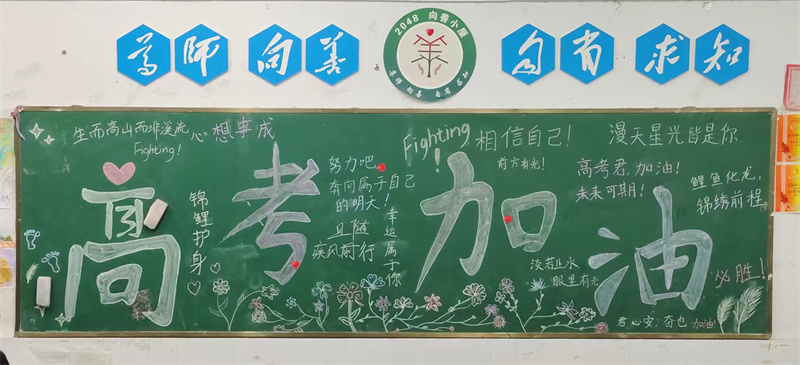 尊师 向善
2048 向善小屋
尊师 向善 自省 求知
自省 求知
生而高山而非溪流
Fighting!
心想事成
Fighting!
相信自己!
前方有光!
漫天星光皆是你
高考加油
锦鲤护身
努力吧,
奔向属于自己
的明天!
且随
疾风前行
幸运属于你
高考君,加油!
未来可期!
鲤鱼化龙,
锦绣前程
淡若止水
眼里有光
必胜!
君心安,奋也 加油!